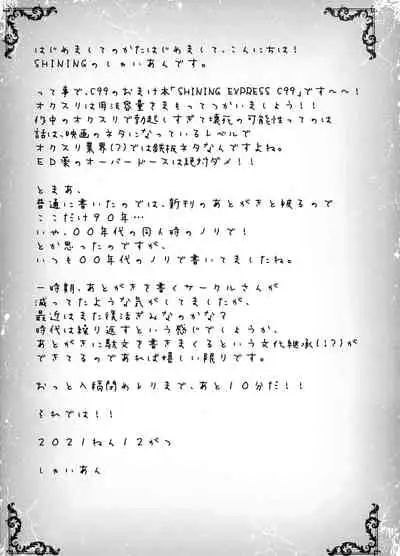 はじめましてのかたはじめまして、こんにちは！
SHININGのしゃいあんです。
って事で、C99のおまけ本「SHINING EXPRESS C99」です〜〜！
オクスリは用法容量をまもってつかいましょう！！
作中のオクスリで勃起しすぎて壊死の可能性ってのは
話は、映画のネタになっているレベルで
オクスリ業界(？)では鉄板ネタなんですよね。
ED薬のオーバードースは絶対ダメ！！
とまあ、
普通に書いたのでは、新刊のあとがきと被るので
ここだけ９０年…
いや、００年代の同人時のノリで！
とか思ったのですが、
いつも００年代のノリで書いてましたね。
一時期、あとがきを書くサークルさんが
減ってたような気がしてましたが、
最近はまた復活ぎみなのかな？
時代は繰り返すという感じでしょうか、
あとがきに駄文を書きまくるという文化継承(！？)が
できてるのであれば嬉しい限りです。
おっと入稿閉め切りまで、あと１０分だ！！
それでは！！
２０２１ねん１２がつ
しゃいあん